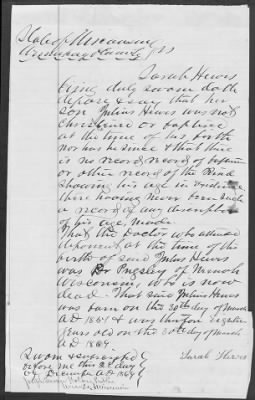 State of Wisconsin
Winnebago County } ss
Sarah Hewis
being duly sworn doth
depose & say that her
son Julius Hewis was not
christened or baptised
at the time of his birth
nor has he since & that there
is no record, record of baptism
or other record of the kind
showing his age in existence
there having never been such
a record of any description
of his age, made
That the doctor who attended
deponent at the time of the
birth of said Julius Hewis
was Dr Pugsley of
Wisconsin, who is now
dead. That said Julius Hewis
was born on the 30th day of March
AD 1849 & was
years old on the 30th day of March
AD 1864
Sworn & subscribed
before me this day
of December AD 1864
Sarah Hewis